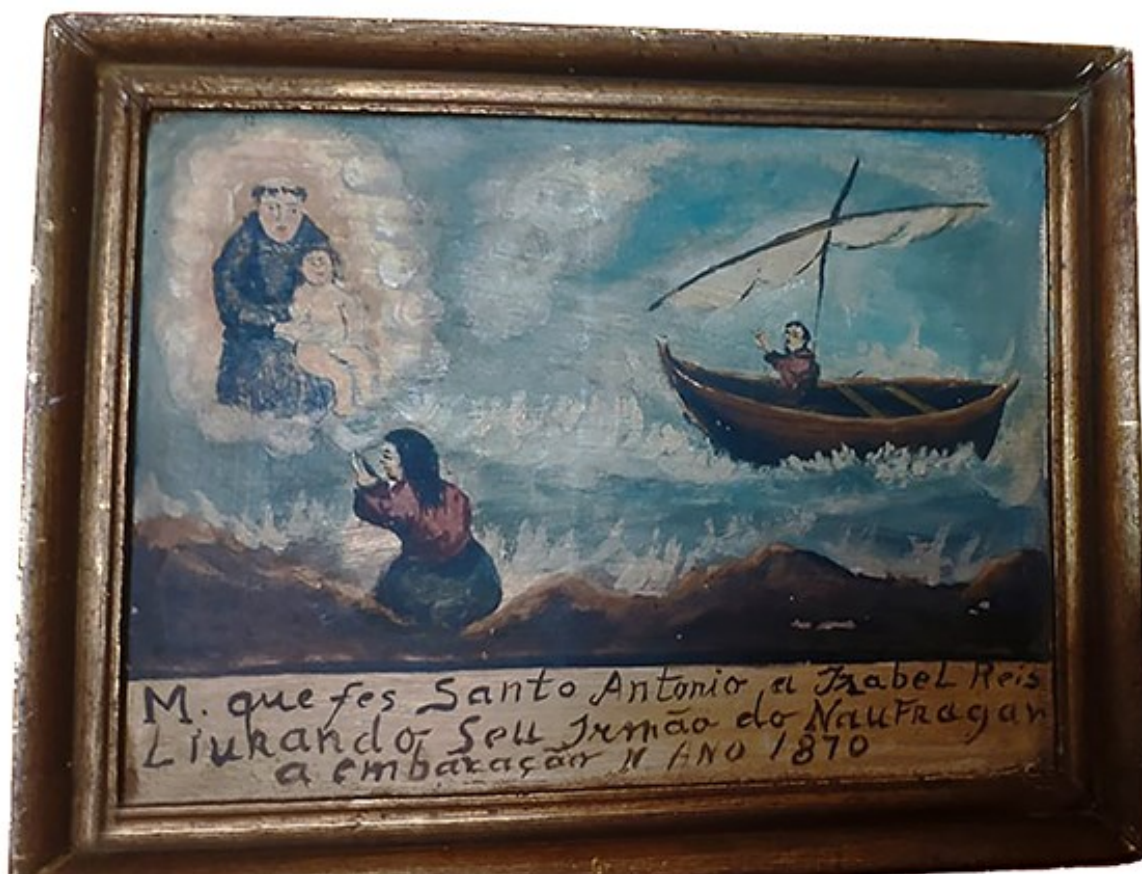 M. que fes Santo Antonio, a Izabel Reis
Liurando Seu Irmão do Naufragar
a embaração N ANO 1870